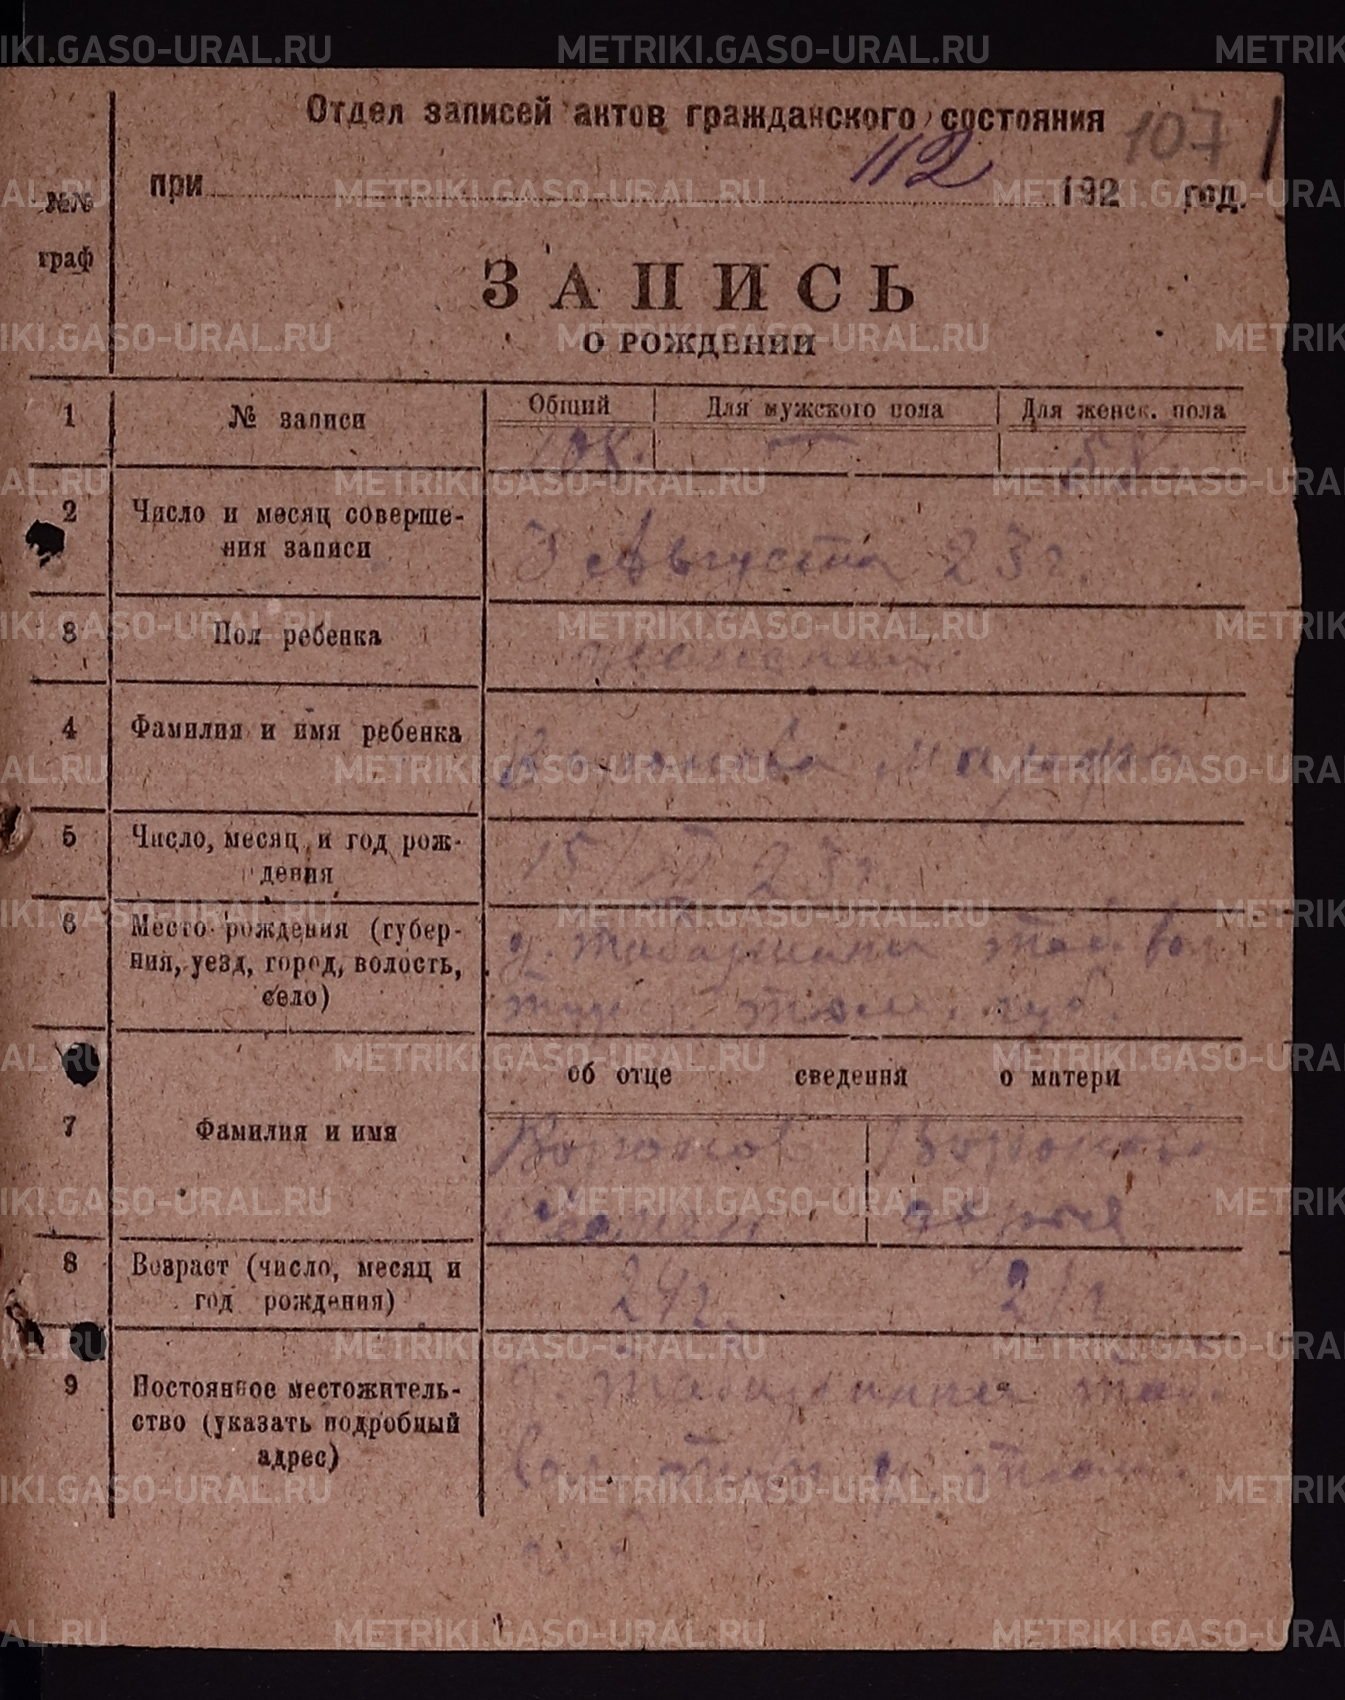 Отдел записей актов гражданского состояния
107
112
при 192 год.
№№
граф
ЗАПИСЬ
О РОЖДЕНИИ
1 № записи Общий Для мужского пола Для женск. пола
108. — 58.
2 Число и месяц соверше-
ния записи
3 Августа 23 г.
3 Пол ребенка
женский.
4 Фамилия и имя ребенка
Воронова Марфа
5 Число, месяц и год рож-
дения
23 г.
6 Место рождения (губер-
ния, уезд, город, волость,
село)
д. Таб. вол.
губ.
об отце сведения о матери
7 Фамилия и имя
Воронов Воронова
Дарья
8 Возраст (число, месяц и
год рождения)
24 г. 21 г
9 Постоянное местожитель-
ство (указать подробный
адрес)
д. Таб.
вол.
METRIKI.GASO-URAL.RU